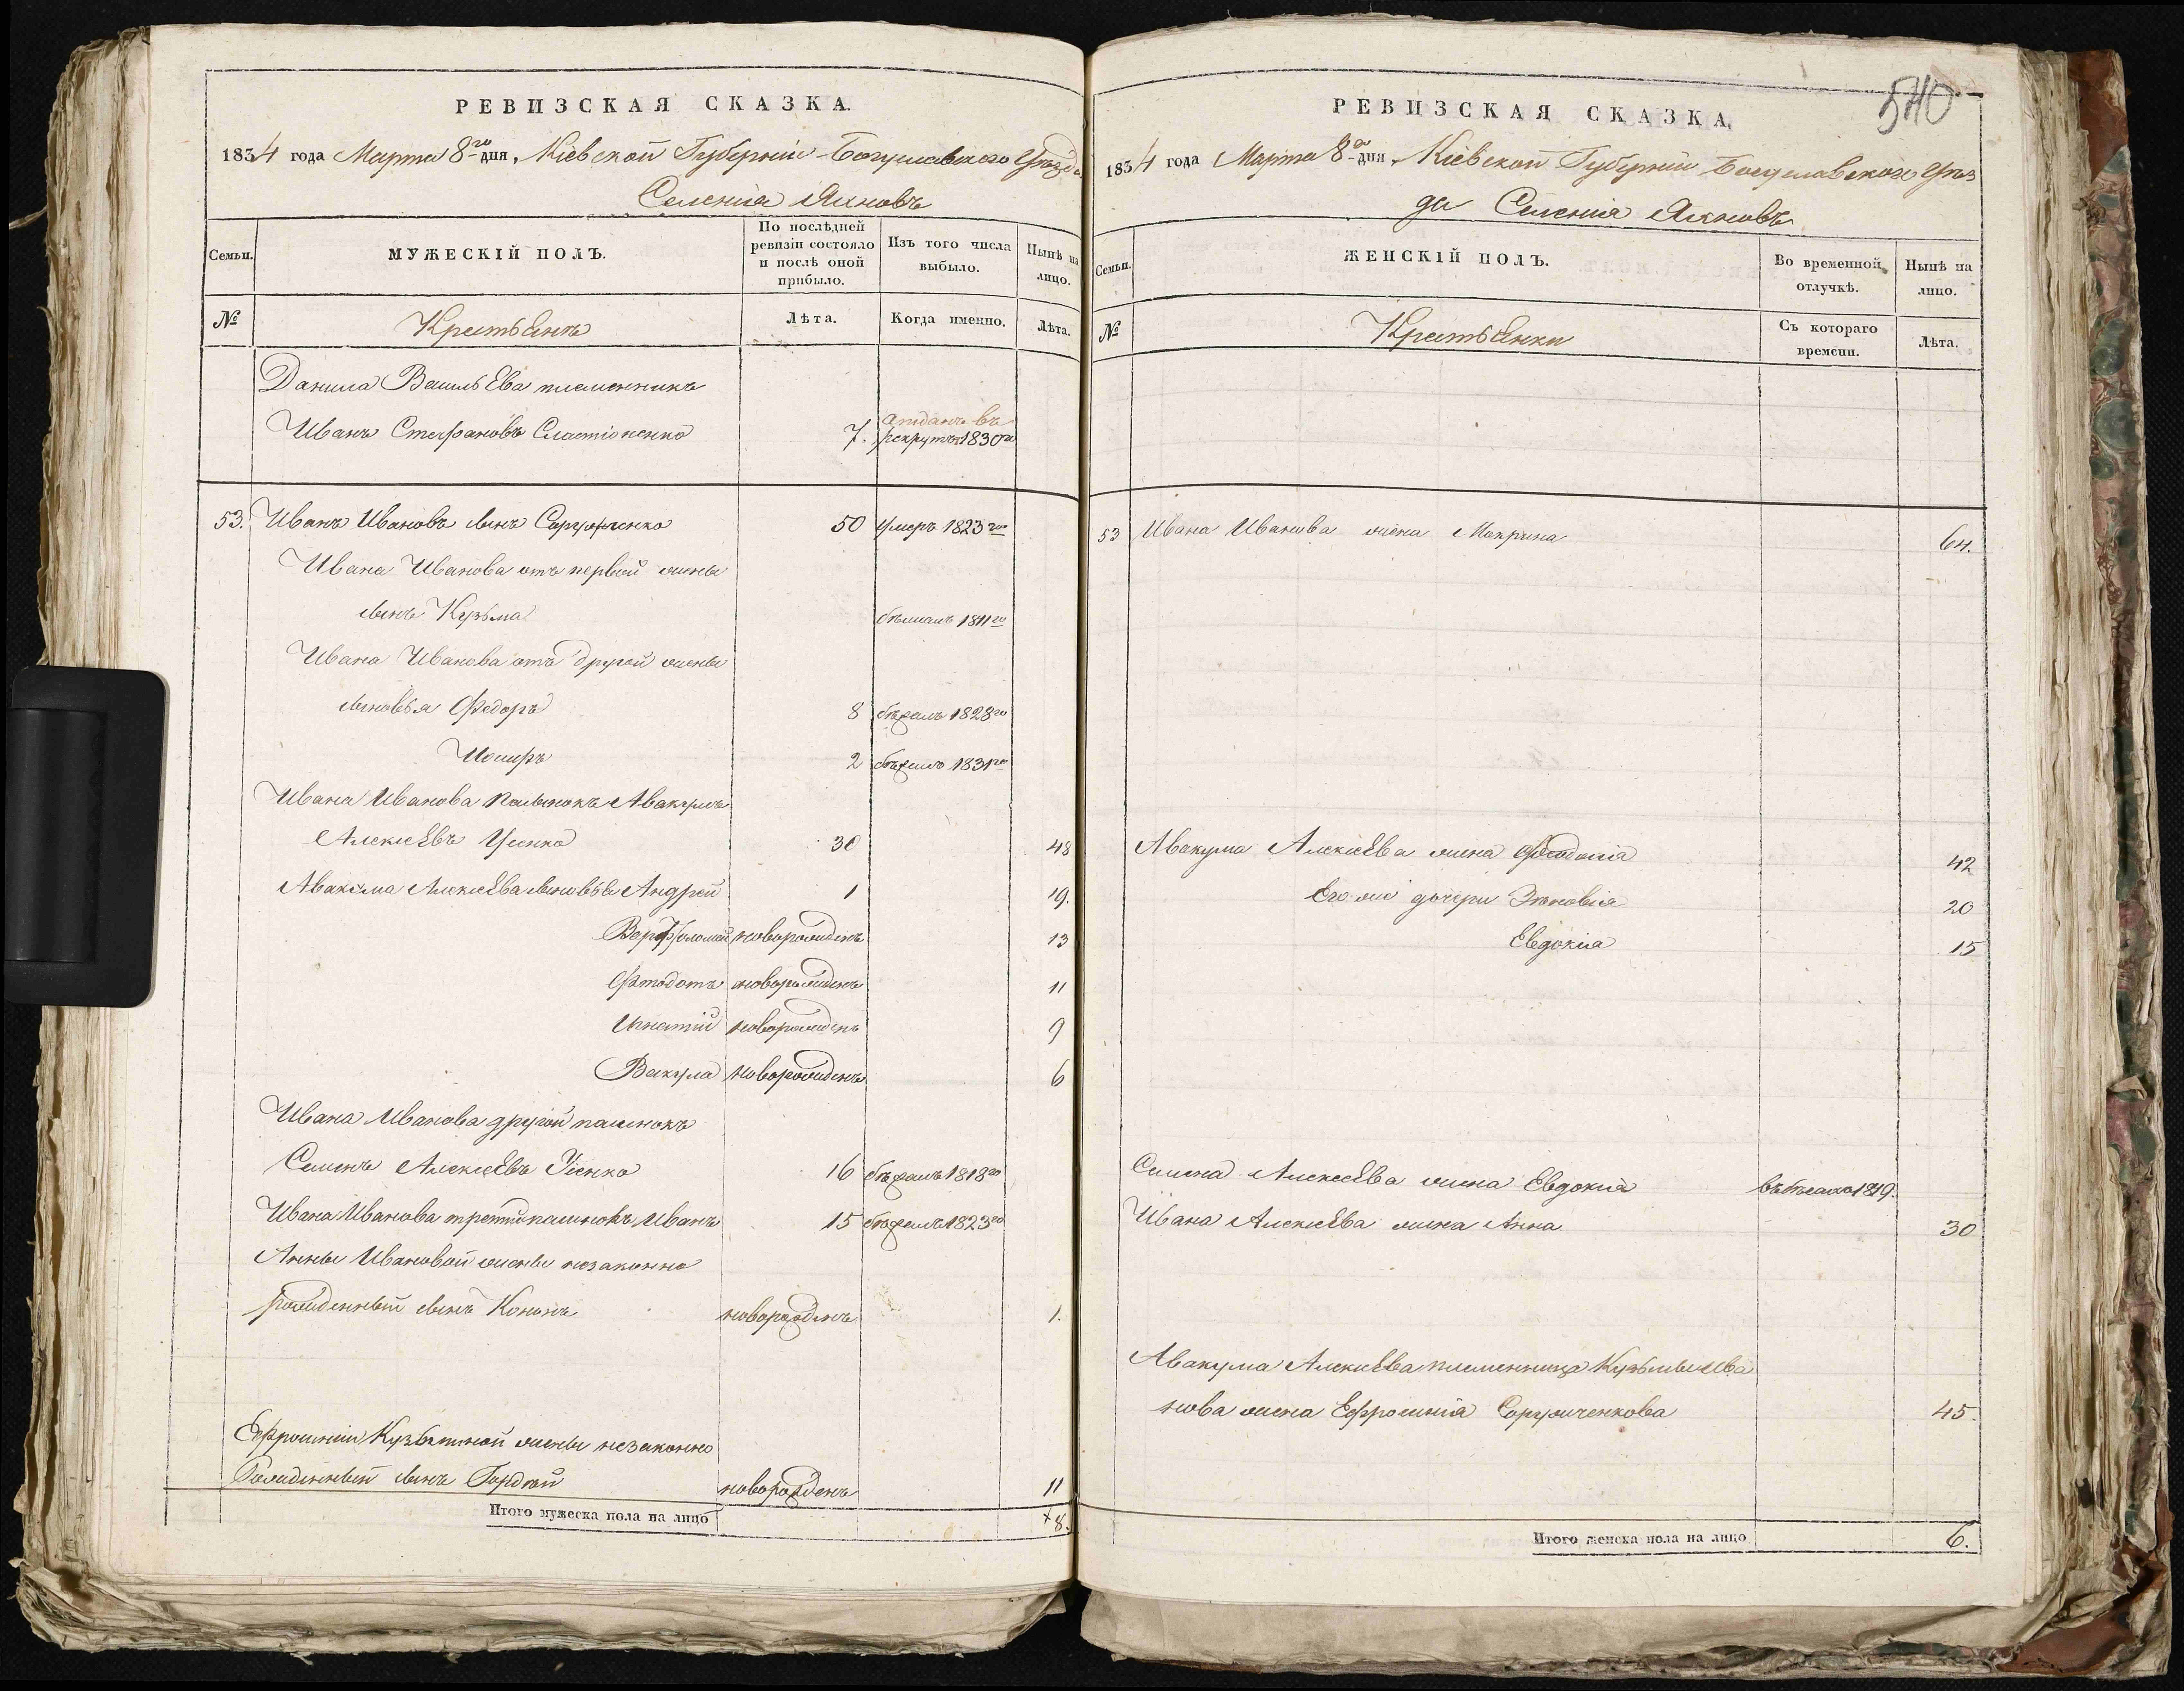 РЕВИЗСКАЯ СКАЗКА.
1834 года Марта 8го дня, Кіевской Губерніи Богуславского Уѣзда
Селенія Яхновъ
Семьи.
МУЖЕСКІЙ ПОЛЪ.
По послѣдней ревизіи состояло и послѣ оной прибыло.
Изъ того числа выбыло.
Нынѣ на лицо.
№
Крестьянъ
Лѣта.
Когда именно.
Лѣта.
Данила Васильева племенникъ
Иванъ Стефановъ 7. отданъ въ рекруты 1830го
53. Иванъ Ивановъ сынъ 50 умеръ 1823го
Ивана Иванова отъ первой жены
сынъ Кузьма бѣжалъ 1811го
Ивана Иванова отъ другой жены
сыновья Федоръ 8 бѣжалъ 1828го
Иосифъ 2 бѣжалъ 1831го
Ивана Иванова пасынокъ Авакумъ
Алексѣевъ Усенко 30 48
Авакума Алексѣева сыновья Андрей 1 19.
Варфоломей новорожденъ 13
Федотъ новорожденъ 11
Игнатій новорожденъ 9
Вакула новорожденъ 6
Ивана Иванова другой пасынокъ
Семенъ Алексѣевъ Усенко 16 бѣжалъ 1818го
Ивана Иванова третій пасынокъ Иванъ 15 бѣжалъ 1823го
Анны Ивановой жены незаконно
рожденный сынъ Кононъ новорожденъ 1.
Ефросиніи Кузьминой жены незаконно
рожденный сынъ Гордѣй новорожденъ 11
Итого мужеска пола на лицо +8.
540
РЕВИЗСКАЯ СКАЗКА,
1834 года Марта 8го дня, Кіевской Губерніи Богуславского Уѣз
да Селенія Яхновъ
Семьи.
ЖЕНСКІЙ ПОЛЪ.
Во временной отлучкѣ.
Нынѣ на лицо.
№
Крестьянки
Съ котораго времени.
Лѣта.
53 Ивана Иванова жена Мокрина 64.
Авакума Алексѣева жена Феодосія 42
Его же дочери Зѣновія 20
Евдокія 15
Семена Алексѣева жена Евдокія въ бѣгахъ 1819.
Ивана Алексѣева жена Анна 30
Авакума Алексѣева племенника Кузьмы Ива
нова жена Ефросинія 45.
Итого женска пола на лицо 6.